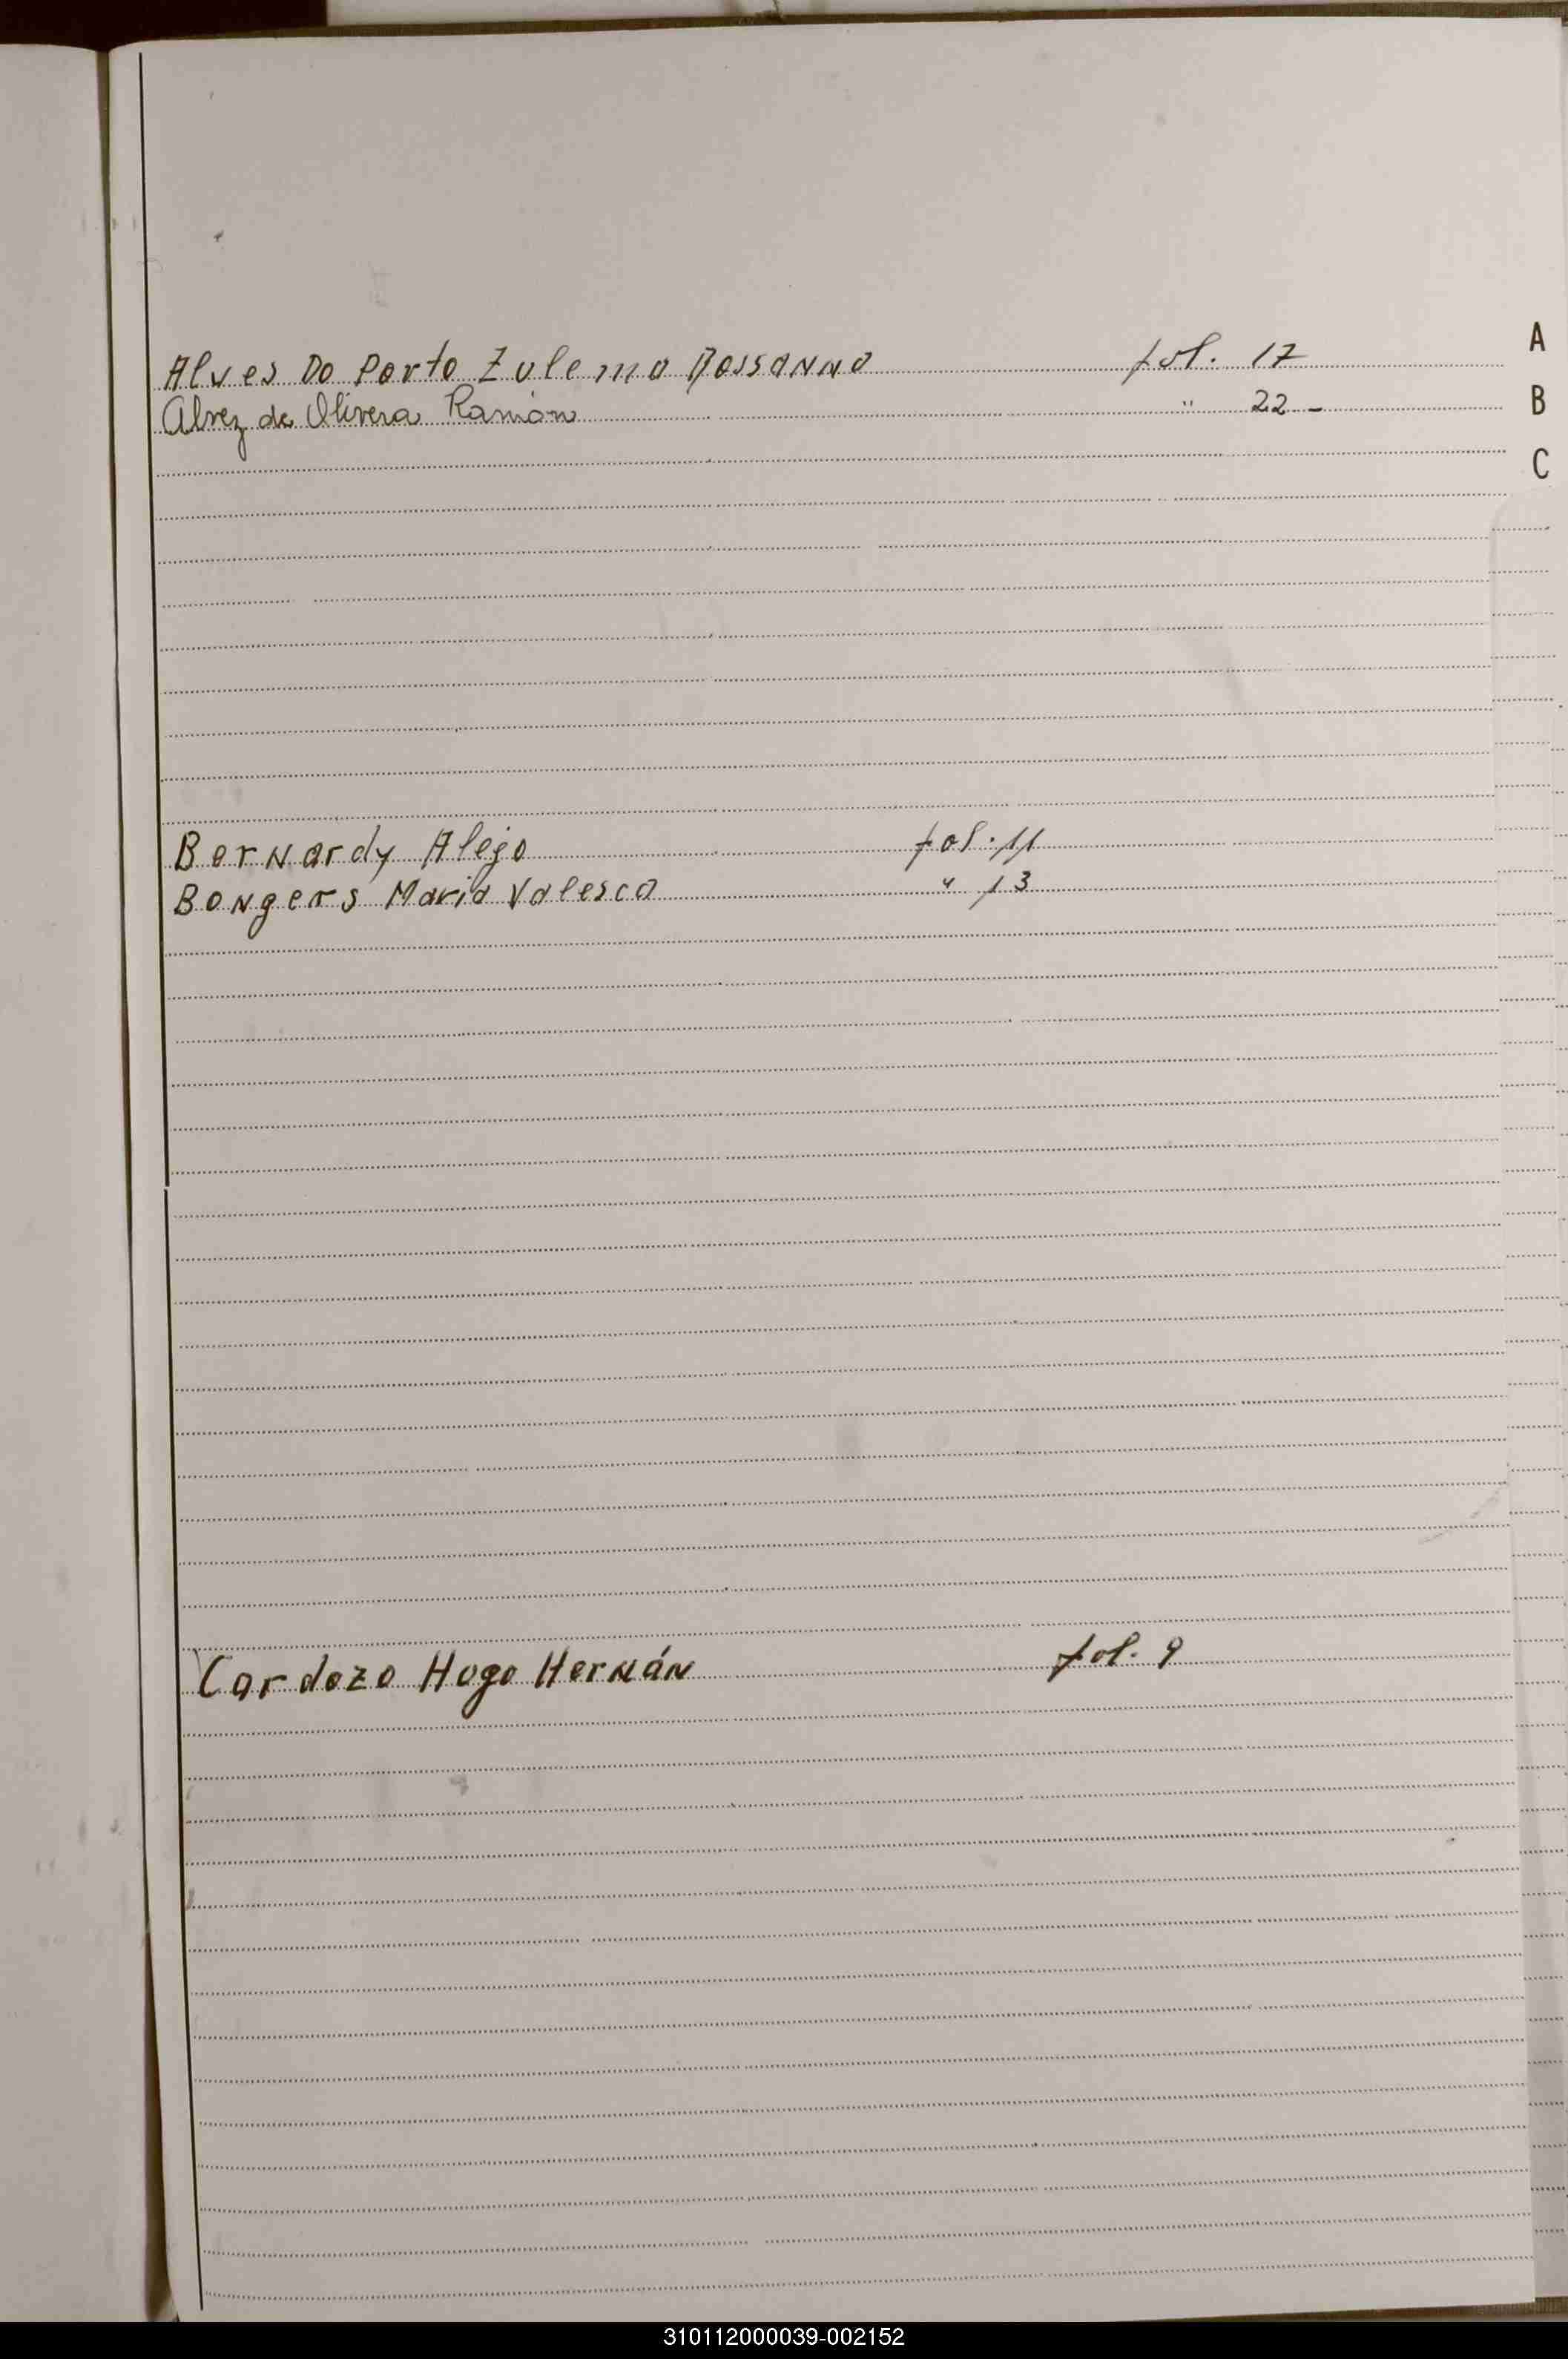 Alves Do Porto Zulema Rossanna fol. 17
Alvez de Olivera Ramón " 22 -
A
B
C
Bernardy Alejo fol. 11
Bongers Maria Valesca " 13
Cardozo Hugo Hernán fol. 9
310112000039-002152